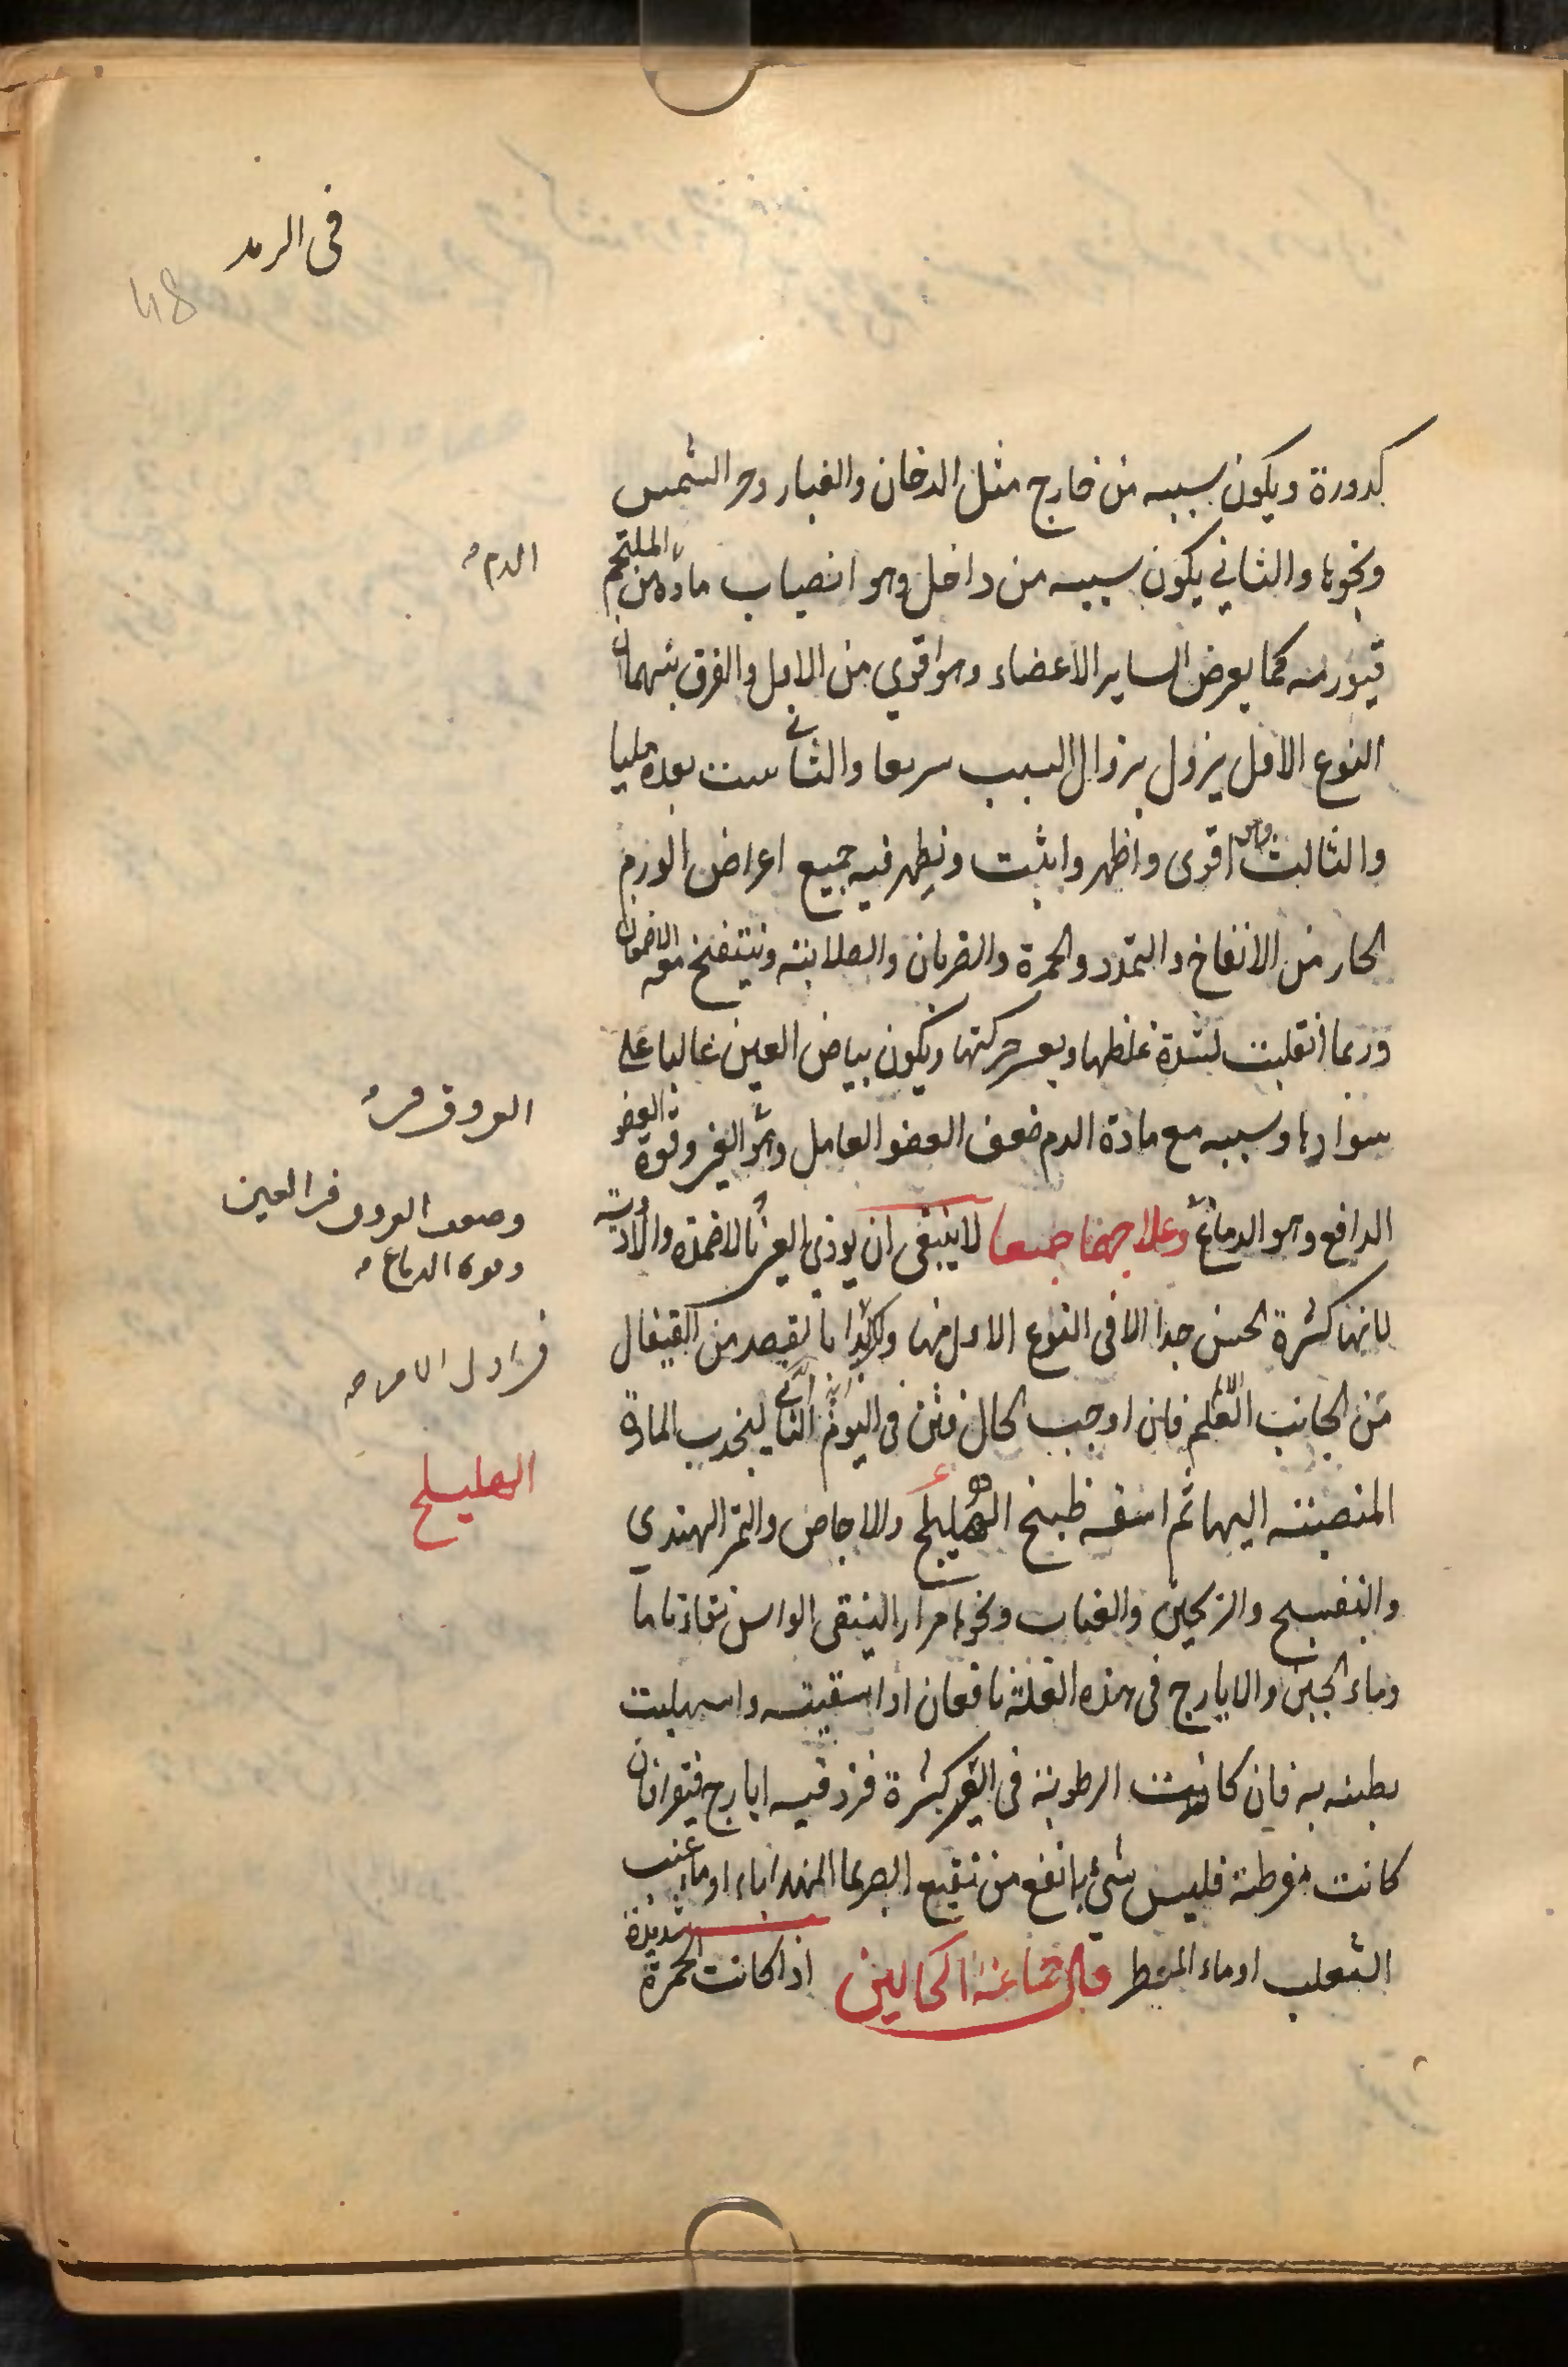 في الرمد
48
كدورة ويكون سببه من خارج مثل الدخان والغبار وحر الشمس
ونحوها والثاني يكون سببه من داخل وهو انصباب مادة من الملتحم
فيورمه كما يعرض لساير الاعضاء وهو اقوي من الاول والفرق بينهما ان
النوع الاول يزول بزوال السبب سريعا والثاني بعده مليا
والثالث وهو اقوى واظهر واثبت ويظهر فيه جميع اعراض الورم
الحار من الانتفاخ والتمدد والحمرة والضربان والصلابة وينتفخ معه الاجفان
وربما انقلبت لشدة غلظها وبعسر حركتها ويكون بياض العين غالبا على
سوادها وسببه مع مادة الدم ضعف العضو العامل وهو العين وقوة العضو
الدافع وهو الدماغ وعلاجهما جميعا لا ينبغي ان يوذي العين بالاضمدة والادوية
لانها كثيرة الحس جدا الا في النوع الاول منها وابدا بالفصد من القيفال
من الجانب فان اوجب الحال فثن في اليوم الثاني لينجذب المادة
المنصبة اليها ثم اسقه طبيخ الهليلج والاجاص والتمر الهندي
والبنفسج والعناب ونحوها مرارا لينقى الراس نقاء تاما
وماء الجبن والايارج في هذه العلة نافعان اذا سقيته واسهلت
بطنه به فان كانت الرطوبة في العين كثيرة فزد فيه ايارج فيقرا فان
كانت مفرطة فليس شيء بانفع من نقيع الصبر بماء الهندباء او ماء عنب
الثعلب او ماء المطر قال الكحالين اذا كانت الحمرة شديدة
الدم
العروق
وضعف العروق في العين
وقوة الدماغ
في اول الامر
الهليلج